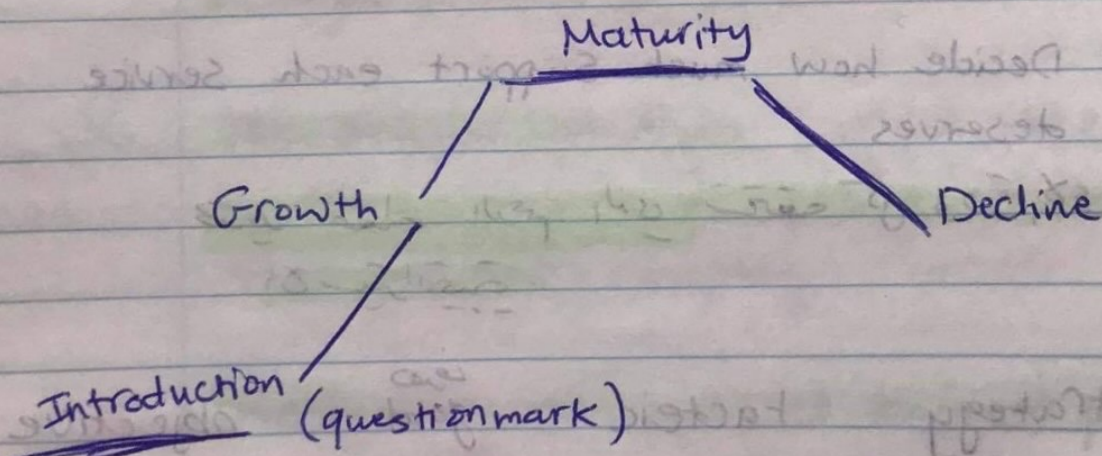 Maturity
Growth
Decline
Introduction (question mark)